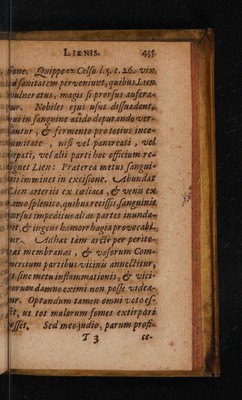 LIENIS. 435
sione. Quippe ex Celso l. 5. c. 26. vix
ad sanitatem perveniunt, quibus Lien
vulneratus, magis si prorsus aufera-
tur. Nobiles ejus usus dissuadent,
qui in sanguine acido depurando ver-
santur, & fermento pro totius inco-
lumitate, nisi vel pancreati, vel
vel alii parti hoc officium re-
signet Lien: Praeterea metus sangui-
nis imminet in excisione. Abundat
Lien arteriis ex coeliaca, & venis ex
ramo splenico, quibus recissis sanguinis
cursus impeditus alias partes inunda-
rit, & ingens haemorrhagia provocabi-
tur. Adhaec tam arcte per perito-
naei membranas, & vasorum Com-
mercium partibus vicinis annectitur,
ut sine metu inflammationis, & vici-
norum damno eximi non posse videa-
tur. Optandum tamen omni voto es-
set, ut tot malorum fomes extirpari
posset. Sed meo judio, parum profi-
T 3 ce-